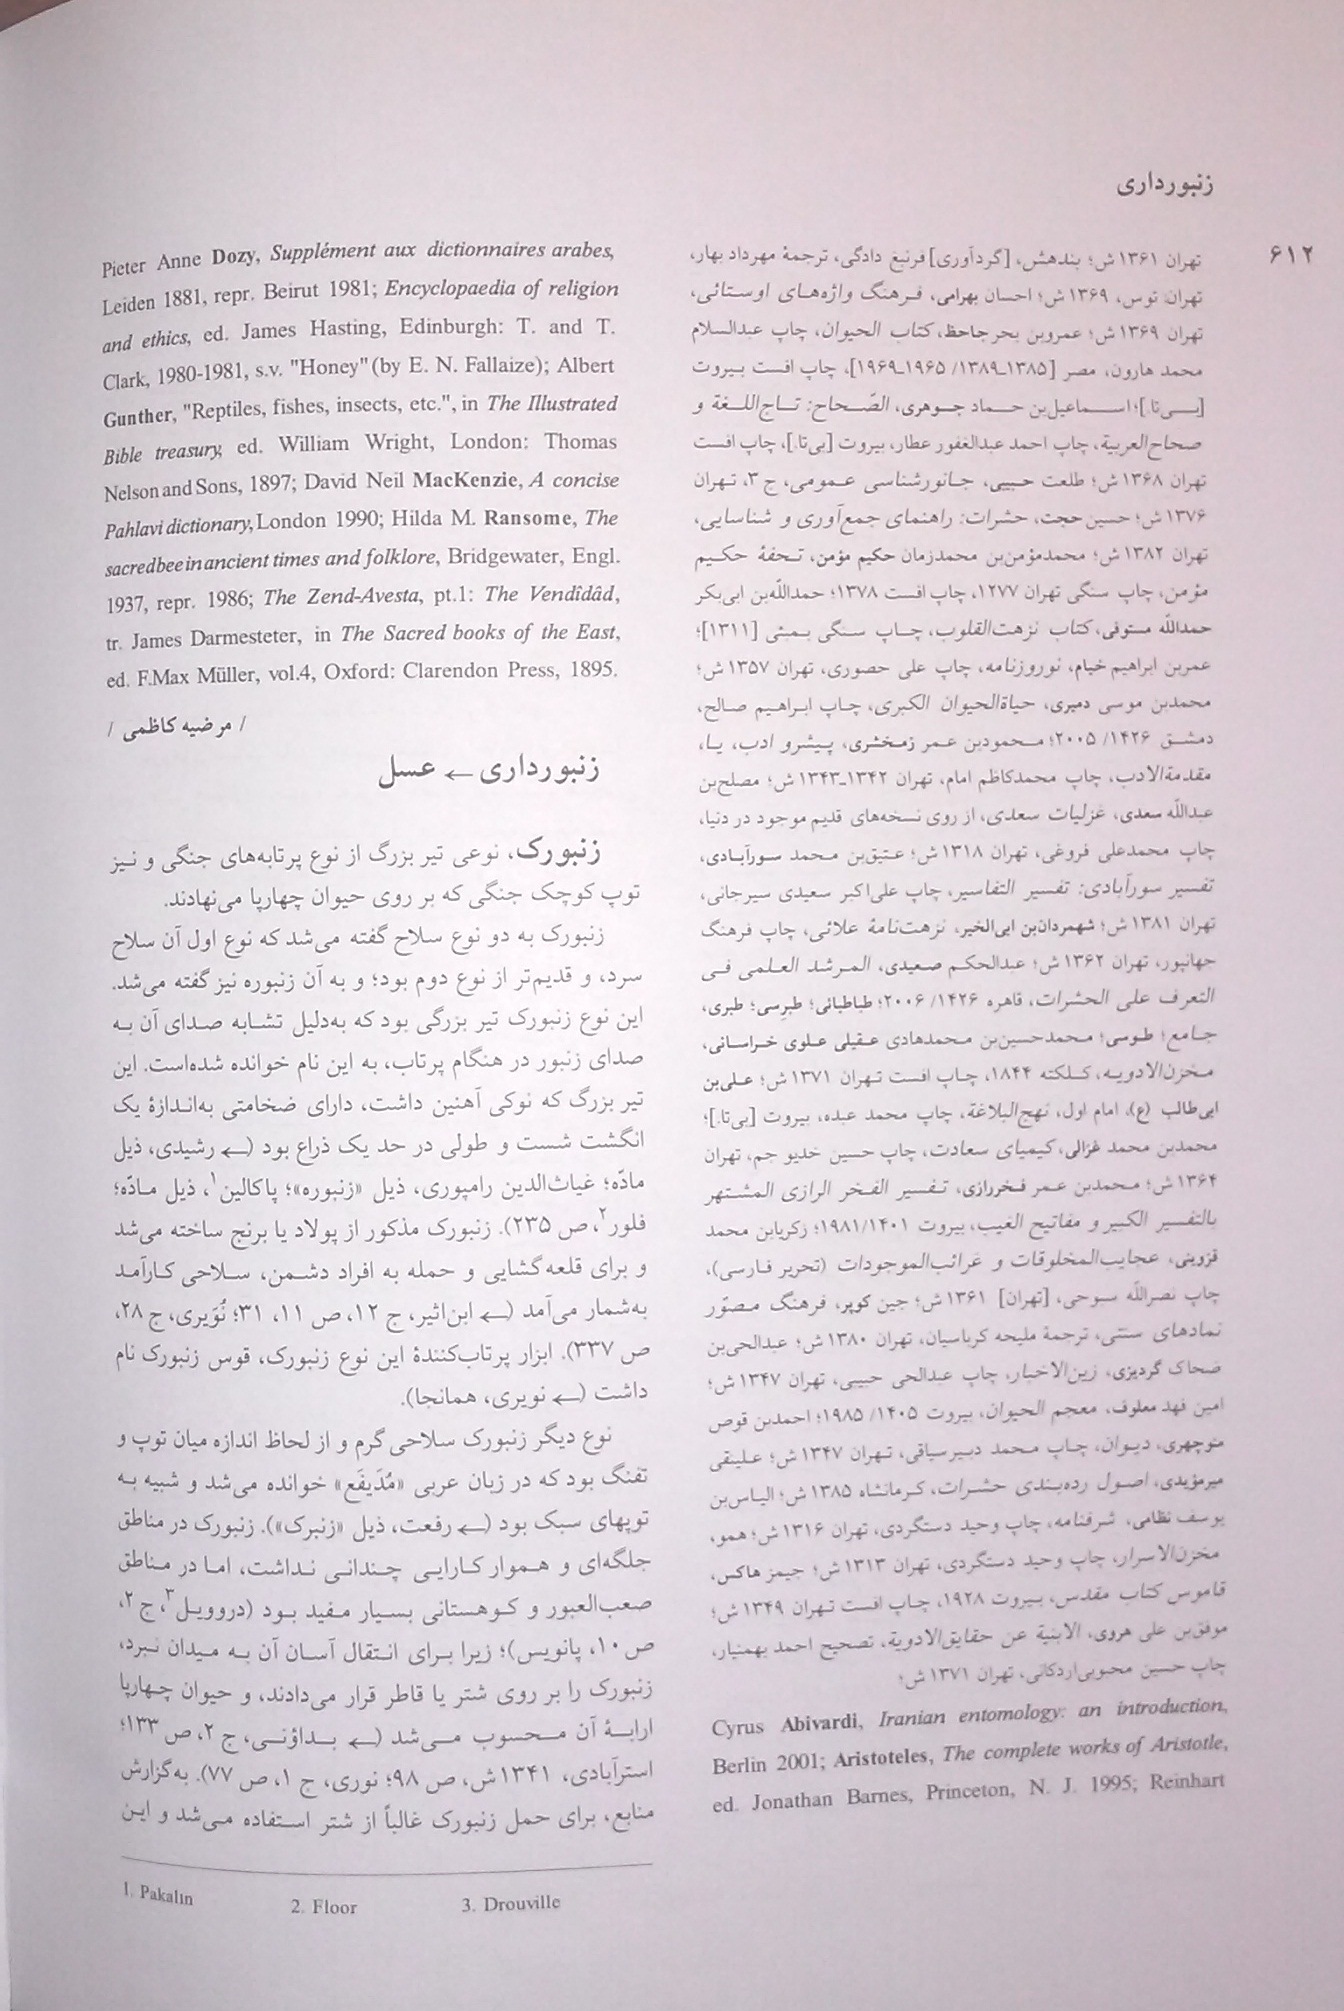 زنبورداری
۶۱۲
تهران ۱۳۶۱ ش؛ بندهش، [گردآوری] فرنبغ دادگی، ترجمهٔ مهرداد بهار،
تهران: توس، ۱۳۶۹ ش؛ احسان بهرامی، فرهنگ واژه‌های اوستائی،
تهران ۱۳۶۹ ش؛ عمروبن بحر جاحظ، کتاب الحیوان، چاپ عبدالسلام
محمد هارون، مصر [۱۳۸۵ـ۱۳۸۹/ ۱۹۶۵ـ۱۹۶۹]، چاپ افست بیروت
[بی‌تا.]؛ اسماعیل‌بن حماد جوهری، الصّحاح: تاج‌اللغة و
صحاح‌العربیة، چاپ احمد عبدالغفور عطار، بیروت [بی‌تا.]، چاپ افست
تهران ۱۳۶۸ ش؛ طلعت حبیبی، جانورشناسی عمومی، ج ۳، تهران
۱۳۷۶ ش؛ حسین حجت، حشرات: راهنمای جمع‌آوری و شناسایی،
تهران ۱۳۸۲ ش؛ محمدمؤمن‌بن محمدزمان حکیم مؤمن، تحفهٔ حکیم
مؤمن، چاپ سنگی تهران ۱۲۷۷، چاپ افست ۱۳۷۸؛ حمداللّه‌بن ابی‌بکر
حمداللّه مستوفی، کتاب نزهت‌القلوب، چاپ سنگی بمبئی [۱۳۱۱]؛
عمربن ابراهیم خیام، نوروزنامه، چاپ علی حصوری، تهران ۱۳۵۷ ش؛
محمدبن موسی دمیری، حیاة‌الحیوان الکبری، چاپ ابراهیم صالح،
دمشق ۱۴۲۶/ ۲۰۰۵؛ محمودبن عمر زمخشری، پیشرو ادب، یا،
مقدمة‌الادب، چاپ محمدکاظم امام، تهران ۱۳۴۲ـ۱۳۴۳ ش؛ مصلح‌بن
عبداللّه سعدی، غزلیات سعدی، از روی نسخه‌های قدیم موجود در دنیا،
چاپ محمدعلی فروغی، تهران ۱۳۱۸ ش؛ عتیق‌بن محمد سورآبادی،
تفسیر سورآبادی: تفسیر التفاسیر، چاپ علی‌اکبر سعیدی سیرجانی،
تهران ۱۳۸۱ ش؛ شهمردان‌بن ابی‌الخیر، نزهت‌نامهٔ علائی، چاپ فرهنگ
جهانپور، تهران ۱۳۶۲ ش؛ عبدالحکم صعیدی، المرشد العلمی فی
التعرف علی الحشرات، قاهره ۱۴۲۶/ ۲۰۰۶؛ طباطبائی؛ طبرسی؛ طبری،
جامع؛ طوسی؛ محمدحسین‌بن محمدهادی عقیلی علوی خراسانی،
مخزن‌الادویه، کلکته ۱۸۴۴، چاپ افست تهران ۱۳۷۱ ش؛ علی‌بن
ابی‌طالب (ع)، امام اول، نهج‌البلاغة، چاپ محمد عبده، بیروت [بی‌تا.]؛
محمدبن محمد غزالی، کیمیای سعادت، چاپ حسین خدیو جم، تهران
۱۳۶۴ ش؛ محمدبن عمر فخررازی، تفسیر الفخر الرازی المشتهر
بالتفسیر الکبیر و مفاتیح الغیب، بیروت ۱۹۸۱/۱۴۰۱؛ زکریابن محمد
قزوینی، عجایب‌المخلوقات و غرائب‌الموجودات (تحریر فارسی)،
چاپ نصراللّه سبوحی، [تهران] ۱۳۶۱ ش؛ جین کوپر، فرهنگ مصوّر
نمادهای سنتی، ترجمهٔ ملیحه کرباسیان، تهران ۱۳۸۰ ش؛ عبدالحی‌بن
ضحاک گردیزی، زین‌الاخبار، چاپ عبدالحی حبیبی، تهران ۱۳۴۷ ش؛
امین فهد معلوف، معجم الحیوان، بیروت ۱۴۰۵/ ۱۹۸۵؛ احمدبن قوص
منوچهری، دیوان، چاپ محمد دبیرسیاقی، تهران ۱۳۴۷ ش؛ علینقی
میرمؤیدی، اصول رده‌بندی حشرات، کرمانشاه ۱۳۸۵ ش؛ الیاس‌بن
یوسف نظامی، شرفنامه، چاپ وحید دستگردی، تهران ۱۳۱۶ ش؛ همو،
مخزن‌الاسرار، چاپ وحید دستگردی، تهران ۱۳۱۳ ش؛ جیمز هاکس،
قاموس کتاب مقدس، بیروت ۱۹۲۸، چاپ افست تهران ۱۳۴۹ ش؛
موفق‌بن علی هروی، الابنیة عن حقایق‌الادویة، تصحیح احمد بهمنیار،
چاپ حسین محبوبی‌اردکانی، تهران ۱۳۷۱ ش؛
Cyrus Abivardi, Iranian entomology: an introduction,
Berlin 2001; Aristoteles, The complete works of Aristotle,
ed. Jonathan Barnes, Princeton, N. J. 1995; Reinhart
Pieter Anne Dozy, Supplément aux dictionnaires arabes,
Leiden 1881, repr. Beirut 1981; Encyclopaedia of religion
and ethics, ed. James Hasting, Edinburgh: T. and T.
Clark, 1980-1981, s.v. "Honey" (by E. N. Fallaize); Albert
Gunther, "Reptiles, fishes, insects, etc.", in The Illustrated
Bible treasury, ed. William Wright, London: Thomas
Nelson and Sons, 1897; David Neil MacKenzie, A concise
Pahlavi dictionary, London 1990; Hilda M. Ransome, The
sacred bee in ancient times and folklore, Bridgewater, Engl.
1937, repr. 1986; The Zend-Avesta, pt.1: The Vendîdâd,
tr. James Darmesteter, in The Sacred books of the East,
ed. F.Max Müller, vol.4, Oxford: Clarendon Press, 1895.
/ مرضیه کاظمی /
زنبورداری ← عسل
زنبورک، نوعی تیر بزرگ از نوع پرتابه‌های جنگی و نیز
توپ کوچک جنگی که بر روی حیوان چهارپا می‌نهادند.
زنبورک به دو نوع سلاح گفته می‌شد که نوع اول آن سلاح
سرد، و قدیم‌تر از نوع دوم بود؛ و به آن زنبوره نیز گفته می‌شد.
این نوع زنبورک تیر بزرگی بود که به‌دلیل تشابه صدای آن به
صدای زنبور در هنگام پرتاب، به این نام خوانده شده‌است. این
تیر بزرگ که نوکی آهنین داشت، دارای ضخامتی به‌اندازهٔ یک
انگشت شست و طولی در حد یک ذراع بود (← رشیدی، ذیل
مادّه؛ غیاث‌الدین رامپوری، ذیل «زنبوره»؛ پاکالین۱، ذیل مادّه؛
فلور۲، ص ۲۳۵). زنبورک مذکور از پولاد یا برنج ساخته می‌شد
و برای قلعه‌گشایی و حمله به افراد دشمن، سلاحی کارآمد
به‌شمار می‌آمد (← ابن‌اثیر، ج ۱۲، ص ۱۱، ۳۱؛ نُوَیری، ج ۲۸،
ص ۳۳۷). ابزار پرتاب‌کنندهٔ این نوع زنبورک، قوس زنبورک نام
داشت (← نویری، همانجا).
نوع دیگر زنبورک سلاحی گرم و از لحاظ اندازه میان توپ و
تفنگ بود که در زبان عربی «مُدَیفَع» خوانده می‌شد و شبیه به
توپهای سبک بود (← رفعت، ذیل «زنبرک»). زنبورک در مناطق
جلگه‌ای و هموار کارایی چندانی نداشت، اما در مناطق
صعب‌العبور و کوهستانی بسیار مفید بود (دروویل۳، ج ۲،
ص ۱۰، پانویس)؛ زیرا برای انتقال آسان آن به میدان نبرد،
زنبورک را بر روی شتر یا قاطر قرار می‌دادند، و حیوان چهارپا
ارابهٔ آن محسوب می‌شد (← بداؤنی، ج ۲، ص ۱۳۳؛
استرآبادی، ۱۳۴۱ ش، ص ۹۸؛ نوری، ج ۱، ص ۷۷). به‌گزارش
منابع، برای حمل زنبورک غالباً از شتر استفاده می‌شد و این
1. Pakalın 2. Floor 3. Drouville